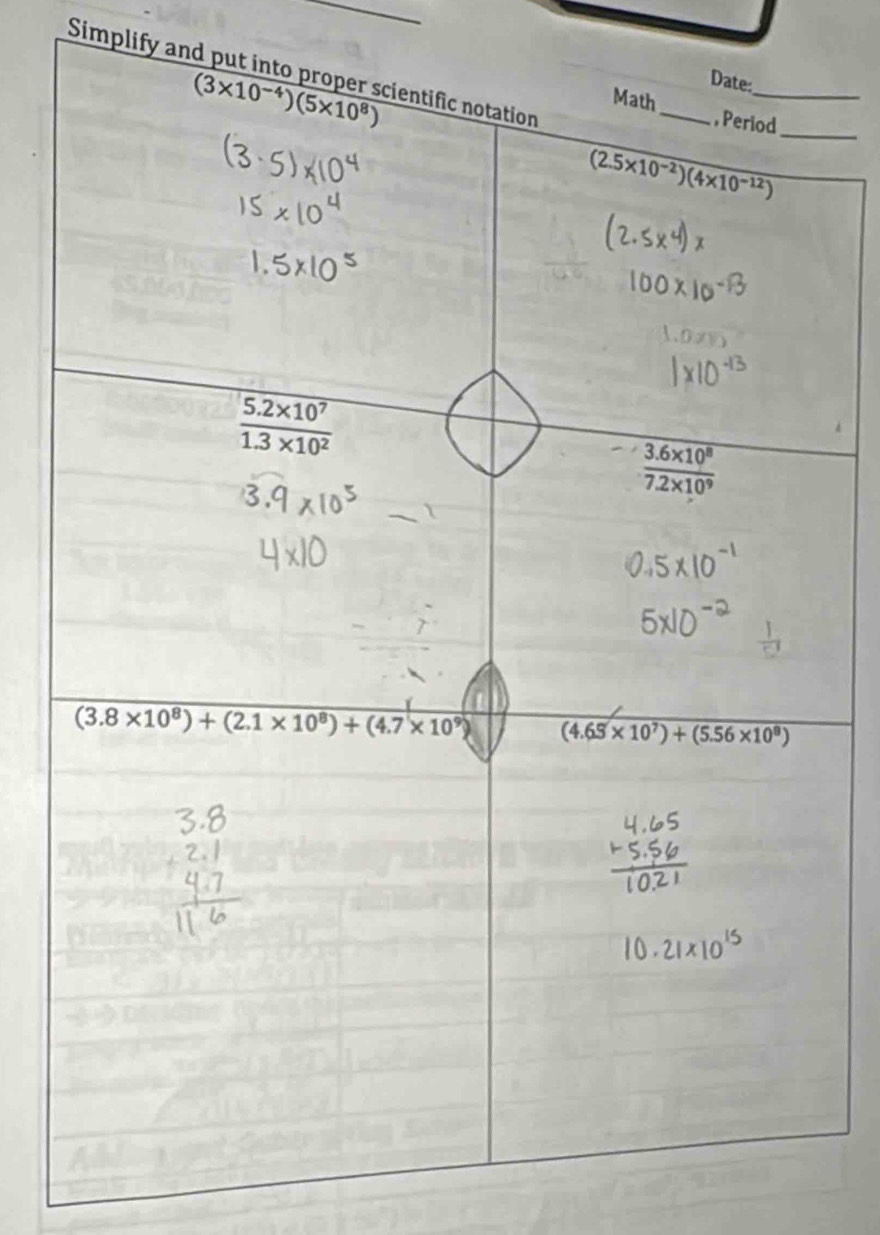 Simplify and put into proper scientific notation
Date:
Math ______, Period ______
(3×10⁻⁴)(5×10⁸)
(3·5)×10⁴
15×10⁴
1.5×10⁵
(2.5×10⁻²)(4×10⁻¹²)
(2.5×4)×
100×10⁻¹³
1×10⁻¹³
5.2×10⁷
1.3 ×10²
3.9×10⁵
4×10
3.6×10⁸
7.2×10⁹
0.5×10⁻¹
5×10⁻²
(3.8 ×10⁸) + (2.1 × 10⁸) + (4.7 × 10⁹)
3.8
+ 2.1
4.7
11 6
(4.65 × 10⁷) + (5.56 ×10⁸)
4.65
+5.56
10.21
10.21×10¹⁵